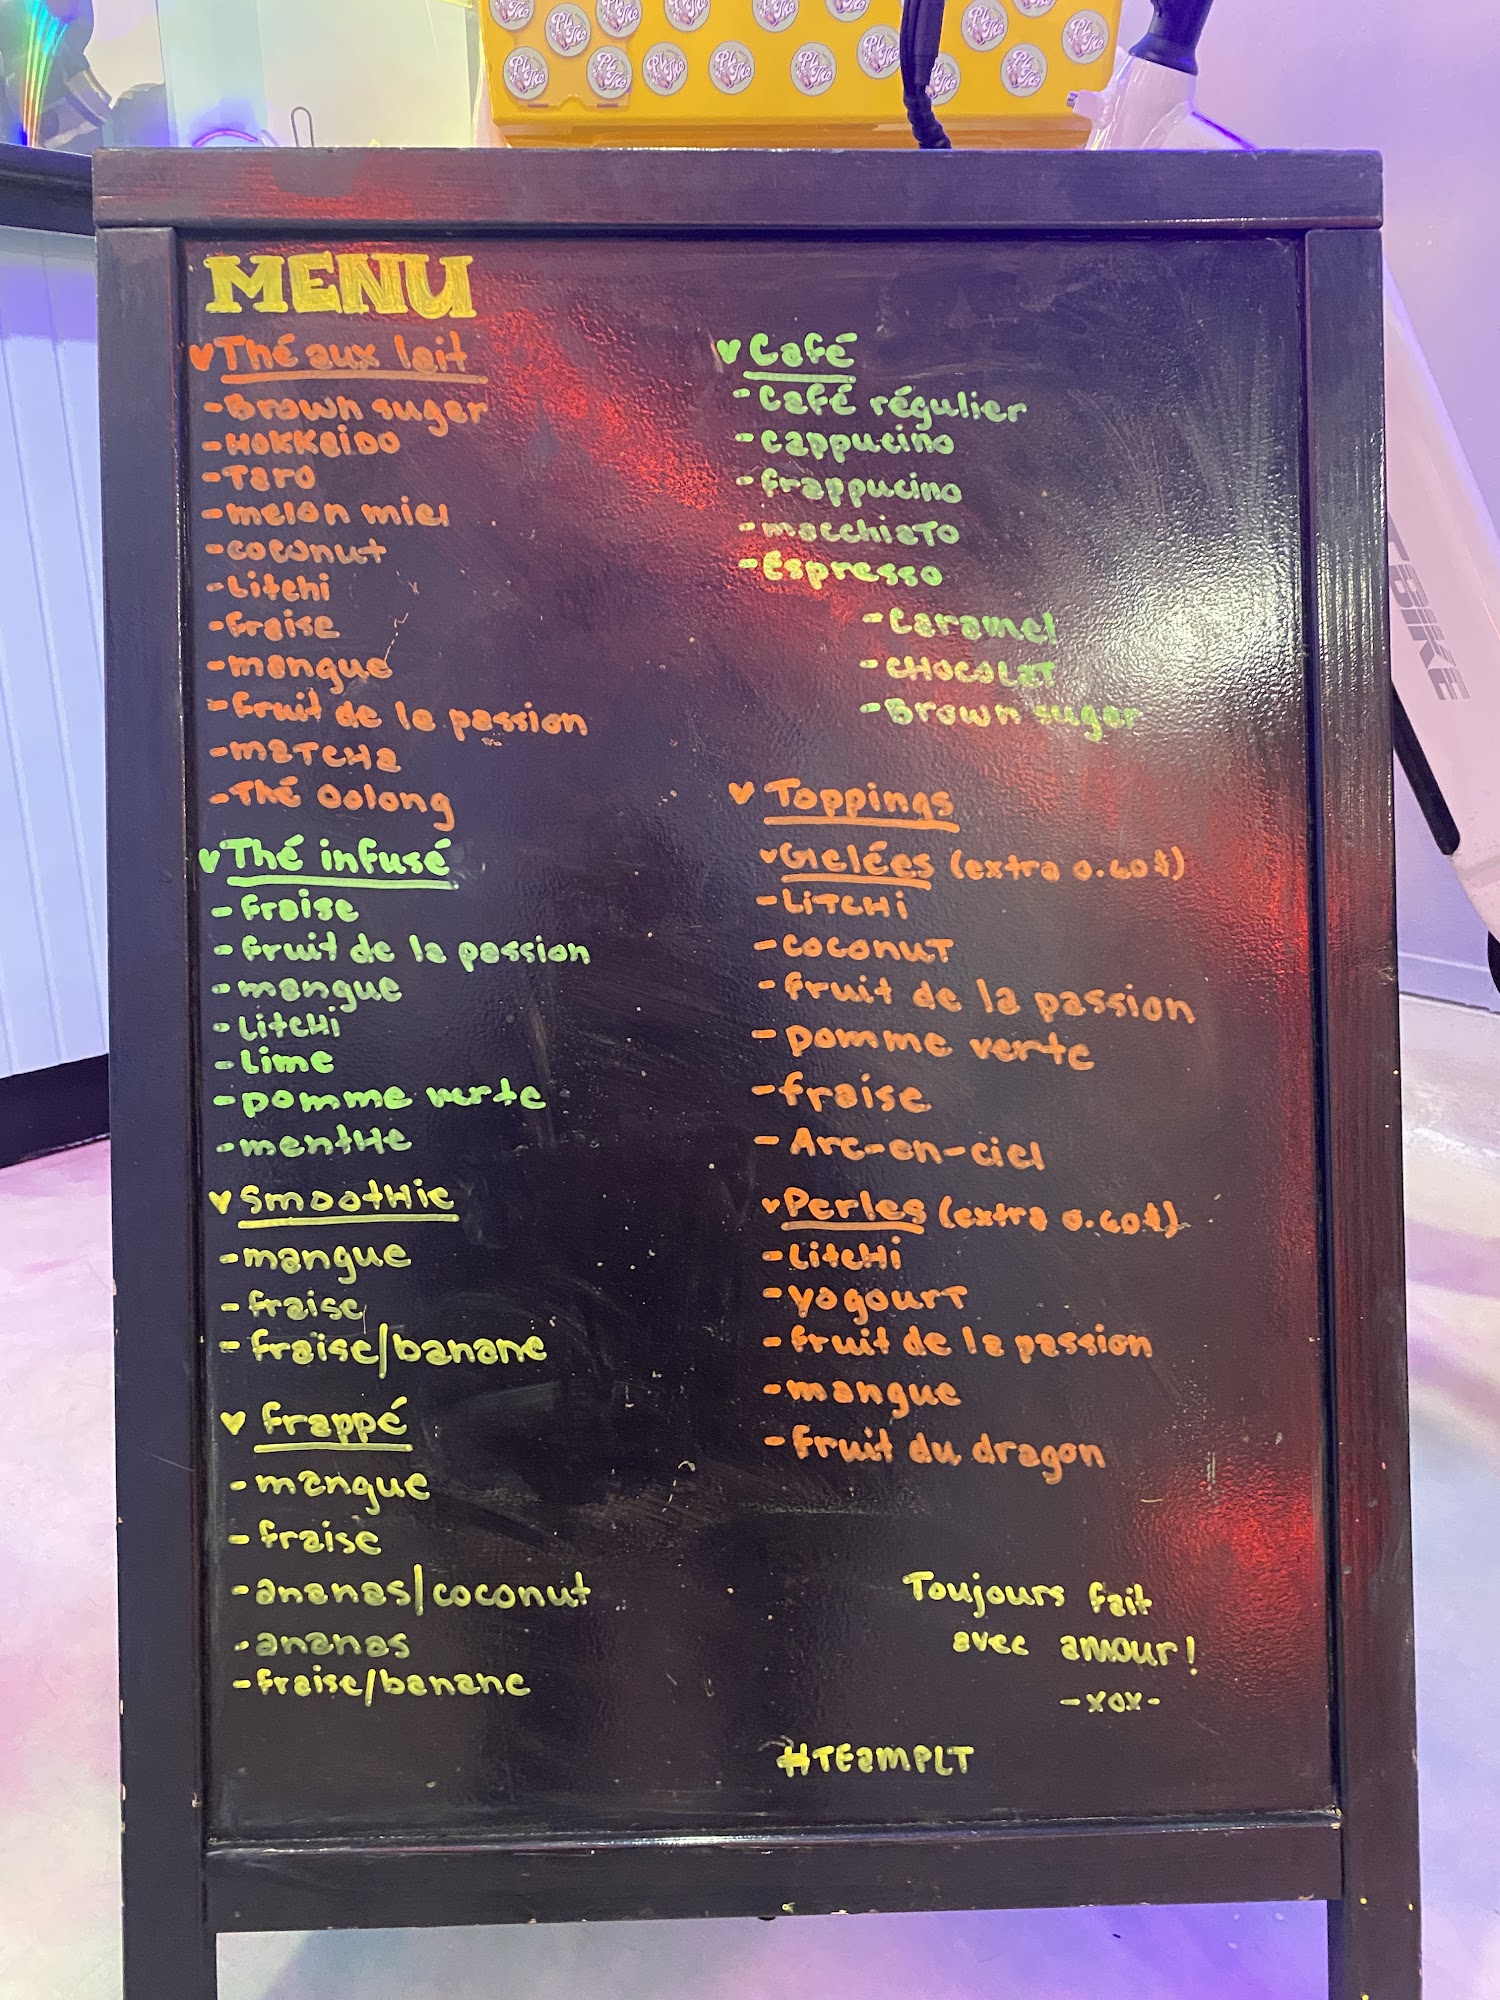 MENU
♥Thé aux lait
-Brown sugar
-HOKKaiDO
-Taro
-melon miel
-coconut
-Litchi
-fraise
-mangue
-fruit de la passion
-maTCHa
-Thé Oolong
♥Thé infusé
-fraise
-fruit de la passion
-mangue
-LitcHi
-Lime
-pomme verte
-mentHe
♥SmootHie
-mangue
-fraise
-fraise/banane
♥frappé
-mangue
-fraise
-ananas/coconut
-ananas
-fraise/banane
♥Café
-Café régulier
-cappucino
-frappucino
-macchiaTo
-Espresso
-Caramel
-CHOCOLaT
-Brown sugar
♥Toppings
♥Gelées (extra 0.60$)
-LiTCHi
-coconuT
-fruit de la passion
-pomme verte
-fraise
-Arc-en-ciel
♥Perles (extra 0.60$)
-LitcHi
-yogourT
-fruit de la passion
-mangue
-fruit du dragon
Toujours fait
avec amour!
-xox-
#TEamPLT
BIKE